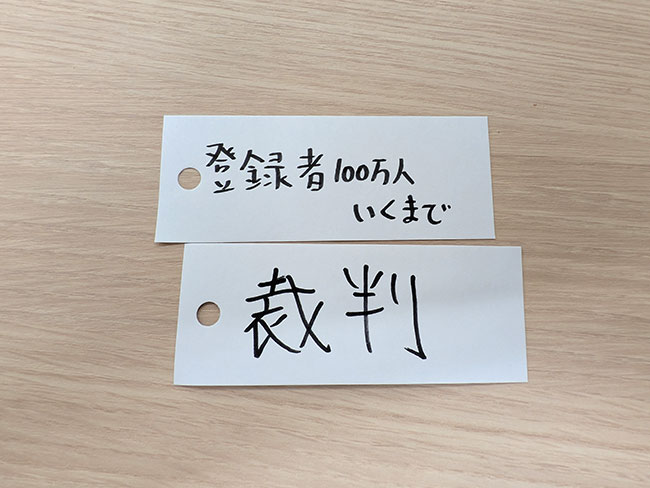 登録者100万人
いくまで
裁判